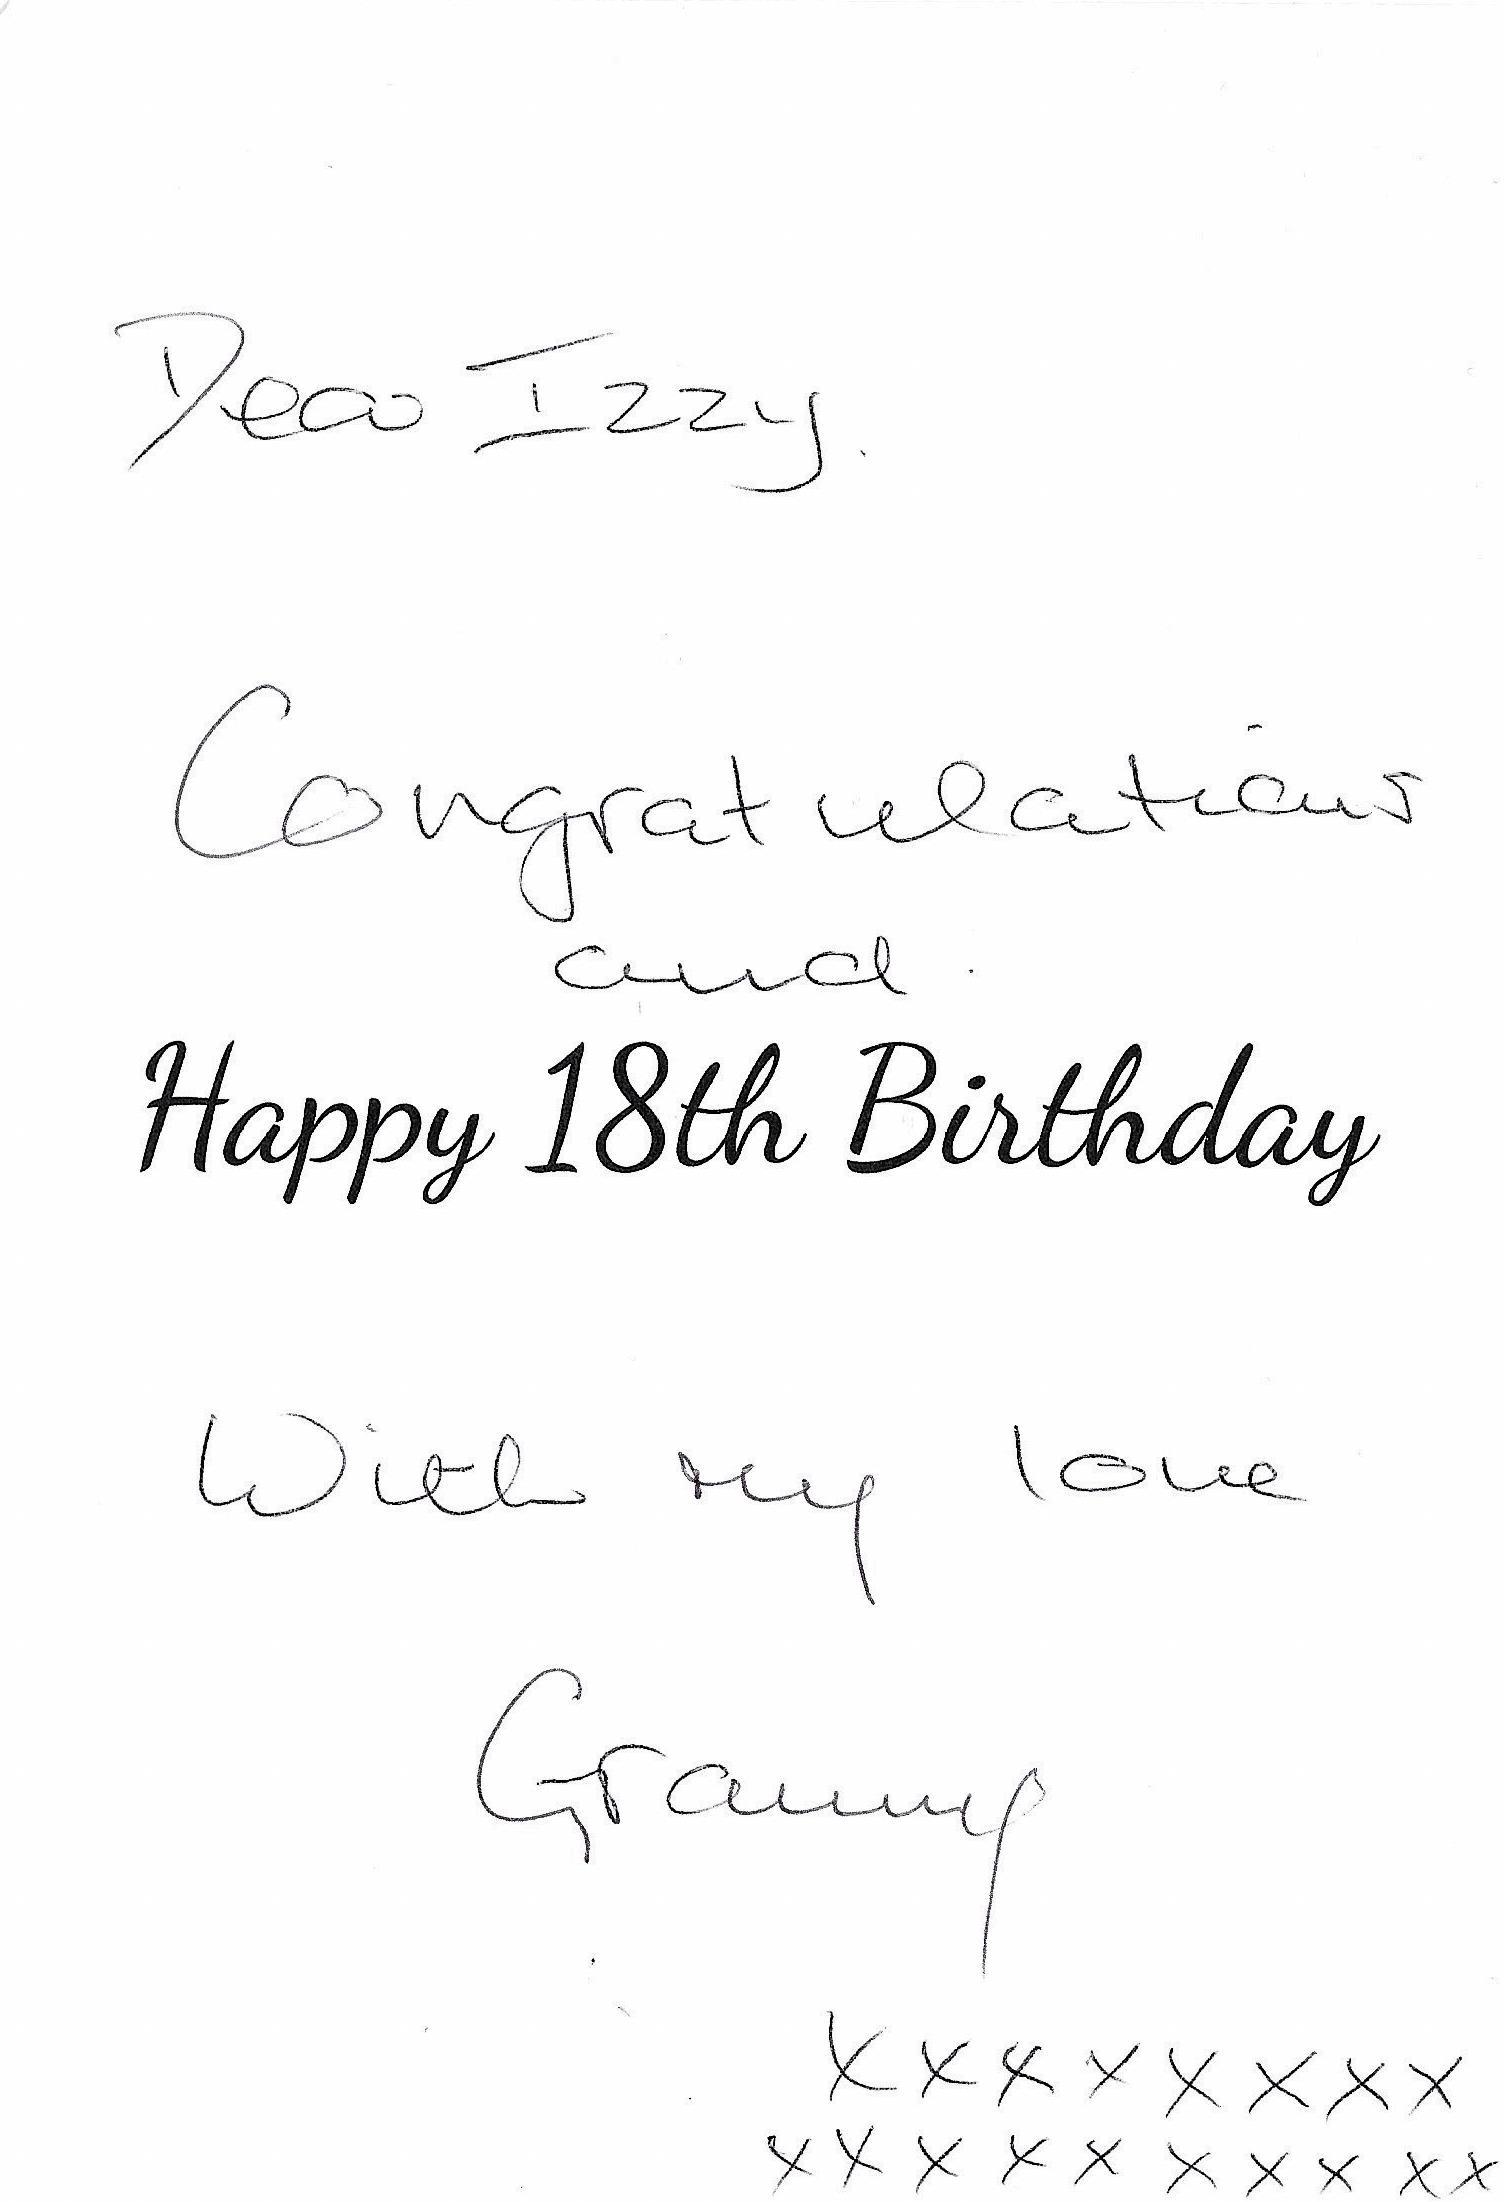 Dear Izzy.
Congratulations
and.
Happy 18th Birthday
With my love
Granny
x x x x x x x x
x x x x x x x x x x